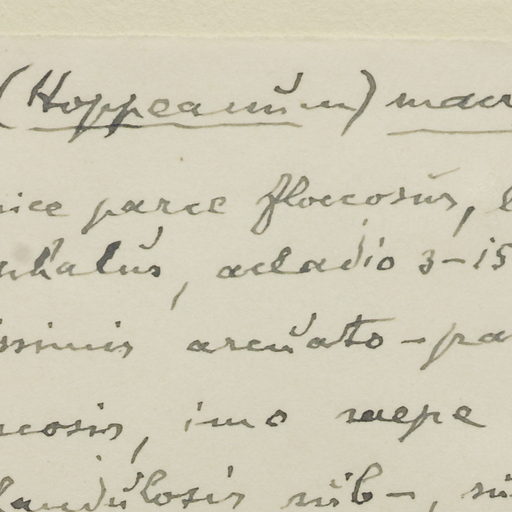 (Hoppeanum) macr
ice parce floccosus, 
phalus, acladio 3-15
issimis arcuato-pa
cosis, imo saepe
landulosis sub-, su